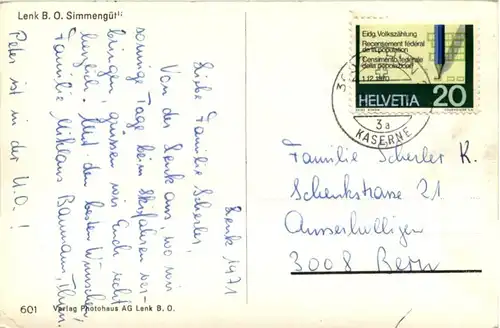 Lenk B. O. Simmengütli
Lenk 1971
Liebe Familie Scherler,
Von der Lenk aus, wo wir
sonnige Tage beim Skifahren ver-
bringen, grüssen wir Euch recht
herzlich. Mit den besten Wünschen
Familie Niklaus Baumann, Thun.
Peter ist in der U.O.!
601 Verlag Photohaus AG Lenk B. O.
Eidg. Volkszählung
Recensement fédéral
de la population
Censimento federale
della popolazione
1.12.1970
HELVETIA 20
3a
KASERNE
Familie Scherler K.
Schenkstrasse 21
Ausserholligen
3008 Bern